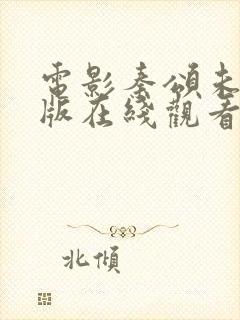 電影秦頌未
版在綫觀看
北傾